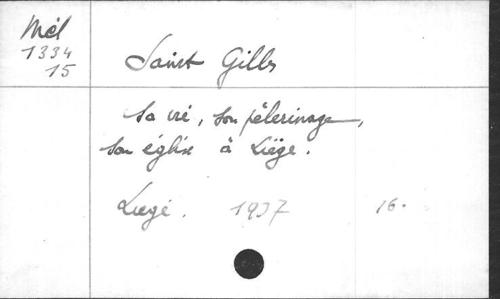 Mél
1334
15
Saint Gilles
Sa vie, son pèlerinage,
son église à Liège.
Liège. 1937 16.